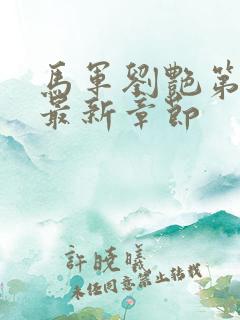 馬軍劉艷第
最新章節
許曉曦
未經同意禁止轉載